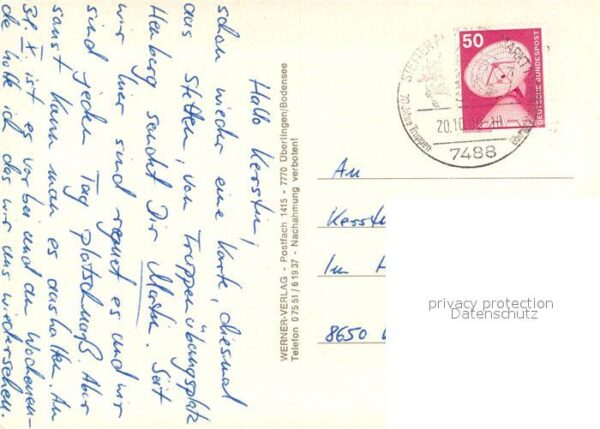 Hallo Kerstin,
schon wieder eine Karte, diesmal
aus Stetten, vom Truppenübungsplatz
Heuberg sendet Dir Martin. Seit
wir hier sind regnet es und wir
sind jeden Tag platschnaß. Aber
sonst kann man es aushalten. Am
31. X. ist es vorbei und am Wochenen-
de hoffe ich das wir uns wiedersehen.
WERNER-VERLAG - Postfach 1415 - 7770 Überlingen/Bodensee
Telefon 0 75 51 / 6 19 37 - Nachahmung verboten!
50
DEUTSCHE BUNDESPOST
STETTEN
MARKT
20.10
7488
70 Jahre Truppen
An
Kerstin
In
8650
privacy protection
Datenschutz